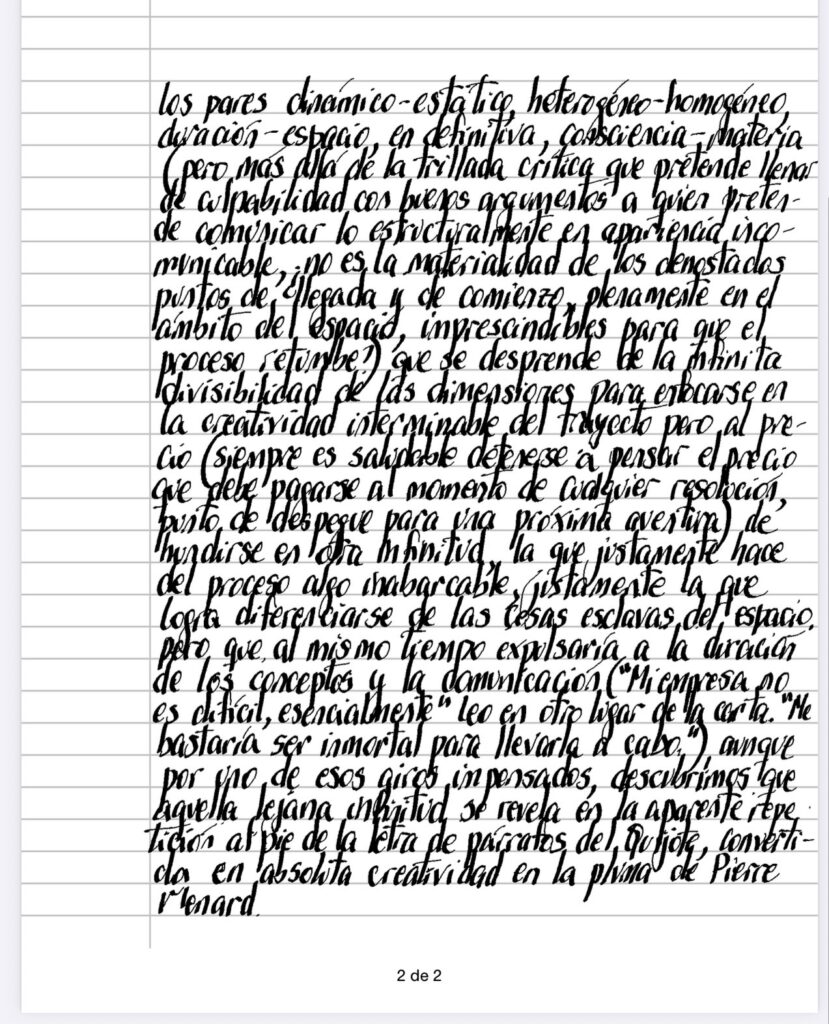 los pares dinámico-estático, heterogéneo-homogéneo,
duración-espacio, en definitiva, consciencia-materia
(pero más allá de la trillada crítica que pretende llenar
de culpabilidad con buenos argumentos a quien preten-
de comunicar lo estructuralmente en apariencia inco-
municable, ¿no es la materialidad de los denostados
puntos de llegada y de comienzo, plenamente en el
ámbito del espacio, imprescindibles para que el
proceso retumbe?) que se desprende de la infinita
divisibilidad de las dimensiones para enfocarse en
la creatividad interminable del trayecto pero al pre-
cio (siempre es saludable detenerse a pensar el precio
que debe pagarse al momento de cualquier resolución,
punto de despegue para una próxima aventura) de
hundirse en otra infinitud, la que justamente hace
del proceso algo inabarcable, justamente la que
logra diferenciarse de las cosas esclavas del espacio,
pero que al mismo tiempo expulsaría a la duración
de los conceptos y la comunicación ("Mi empresa no
es difícil, esencialmente" leo en otro lugar de la carta. "Me
bastaría ser inmortal para llevarla a cabo.") aunque
por uno de esos giros impensados, descubrimos que
aquella lejana infinitud se revela en la aparente repe-
tición al pie de la letra de párrafos del Quijote, converti-
da en absoluta creatividad en la pluma de Pierre
Menard.
2 de 2